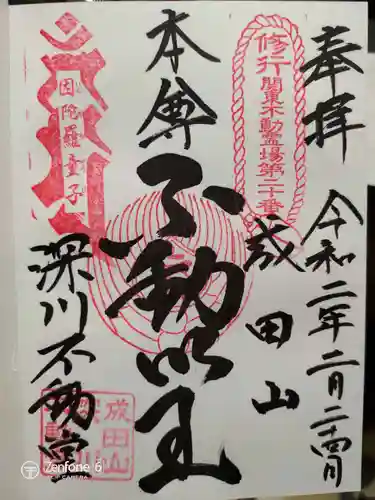 奉拝
令和二年二月二十四日
修行
関東不動霊場第二十番
成田山
本尊
不動明王
因陀羅童子
深川不動堂
成田山
Zenfone 6